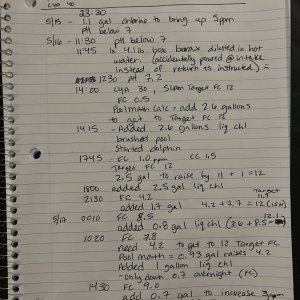 CYA 40
23:30
5/15 - 1.1 gal chlorine to bring up 5ppm
pH below 7
5/16 - 11:30 pH below 7
11:45 1x 4lb box borax diluted in hot
water. (accidentally poured @ intake
instead of return as instructed)
1230 pH 7.2
14:00 CYA 30, Slam Target FC 12
FC 0.5
Pool math calc = add 2.6 gallons
to get to Target FC 12
1415 - Added 2.6 gallons liq chl
brushed pool
Started dolphin
1745 - FC 1.0 ppm CC 4.5
Target FC 12
2.5 gal to raise by 11 + 1 = 12
1800 added 2.5 gal liq chl
Target
2130 FC 4.2
added 1.7 gal 4.2 + 7.7 = 12
5/17 0010 FC 8.5
added 0.8 gal liq chl (3.6 + 8.5 = 12.1)
1020 FC 7.8
need 4.2 to get to 12 Target FC
Pool math = 0.93 gal raises 4.2
Added 1 gallon liq chl
- Only down 0.7 overnight (FC)
1430 FC 9.0
add 0.7 gal to increase 3ppm